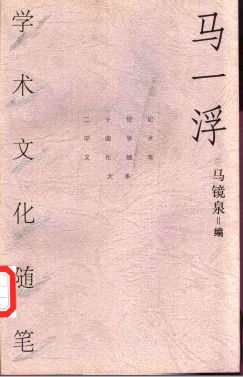 马一浮
学术文化随笔
二十世纪
中国学术
文化随笔
大系
马镜泉=编